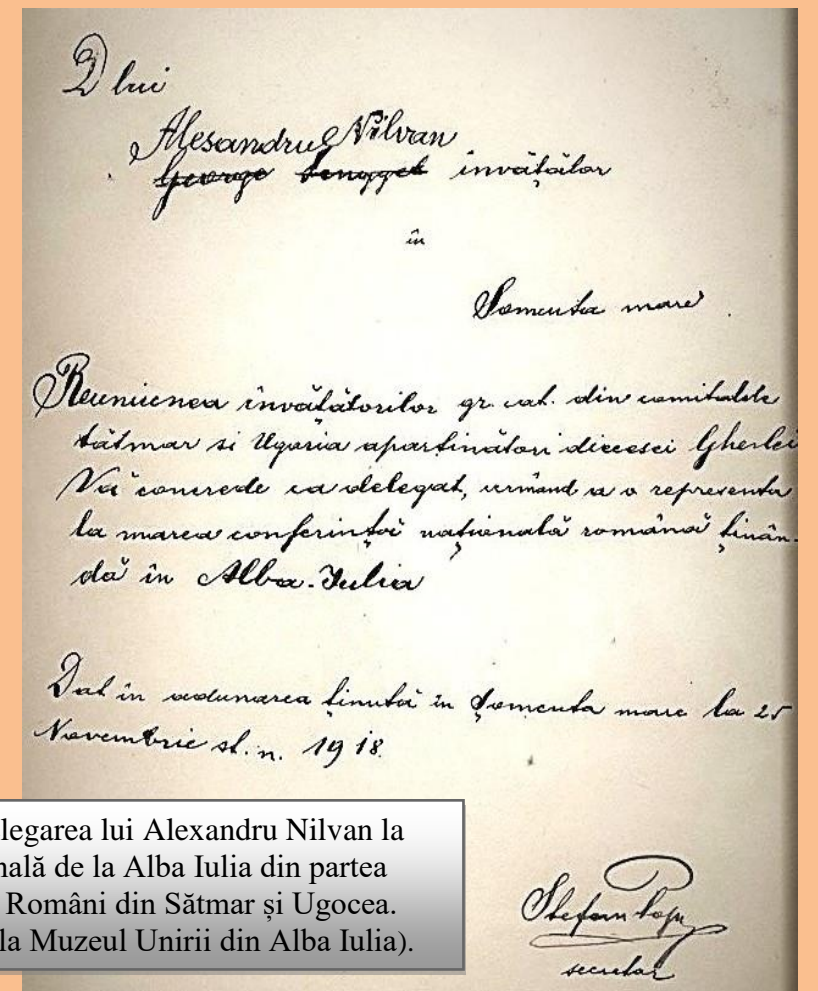 D lui
Alesandru Nilvan
George învățător
în
Somcuta mare
Reuniunea învățătorilor gr. cat. din comitatele
Sătmar si Ugocia aparținători diecesei Gherlei
Vă concrede ca delegat, urmând a o representa
la marea conferință națională română ținân-
dă în Alba-Iulia
Dat în adunarea ținută în Șomcuta mare la 25
Novembrie st. n. 1918.
legarea lui Alexandru Nilvan la
nală de la Alba Iulia din partea
Români din Sătmar și Ugocea.
la Muzeul Unirii din Alba Iulia).
Stefan Pop
secretar